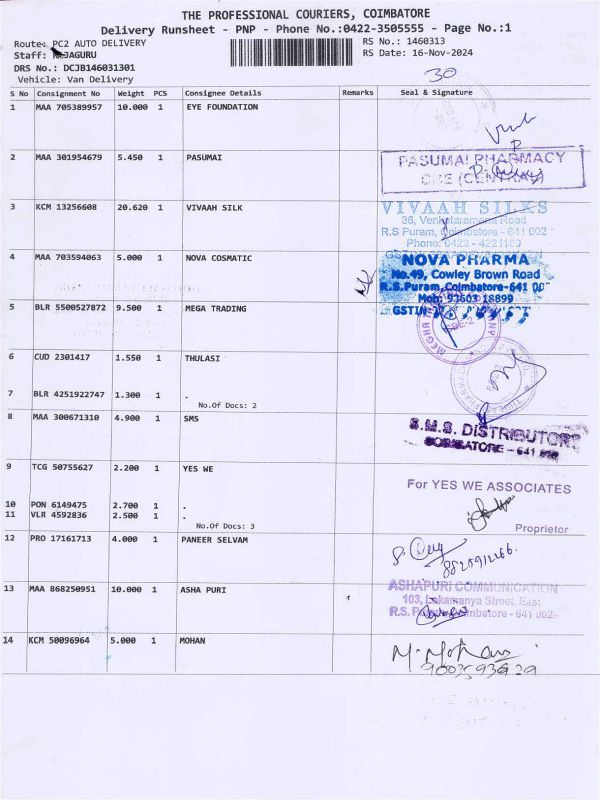 THE PROFESSIONAL COURIERS, COIMBATORE
Delivery Runsheet - PNP - Phone No.:0422-3505555 - Page No.:1
Route: PC2 AUTO DELIVERY
RS No.: 1460313
Staff: RAJAGURU
RS Date: 16-Nov-2024
DRS No.: DCJB146031301
Vehicle: Van Delivery
30
S No Consignment No Weight PCS Consignee Details Remarks Seal & Signature
1 MAA 705389957 10.000 1 EYE FOUNDATION
2 MAA 301954679 5.450 1 PASUMAI
PASUMAI PHARMACY
CBE (CENTRAL)
3 KCM 13256608 20.620 1 VIVAAH SILK
VIVAAH SILKS
36, Venkataramana Road
R.S Puram, Coimbatore - 641 002
Phone: 0422 - 4221180
4 MAA 703594063 5.000 1 NOVA COSMATIC
NOVA PHARMA
No.49, Cowley Brown Road
R.S.Puram, Coimbatore-641 00
Mob: 93603 18899
GSTIN
5 BLR 5500527872 9.500 1 MEGA TRADING
CBE-2
6 CUD 2301417 1.550 1 THULASI
7 BLR 4251922747 1.300 1 .
No.Of Docs: 2
8 MAA 300671310 4.900 1 SMS
S.M.S. DISTRIBUTORS
COIMBATORE - 641
9 TCG 50755627 2.200 1 YES WE
For YES WE ASSOCIATES
Proprietor
10 PON 6149475 2.700 1 .
11 VLR 4592836 2.500 1 .
No.Of Docs: 3
12 PRO 17161713 4.000 1 PANEER SELVAM
13 MAA 868250951 10.000 1 ASHA PURI
ASHAPURI COMMUNICATION
103, Lokamanya Street, East
R.S. Puram, Coimbatore - 641 002.
14 KCM 50096964 5.000 1 MOHAN
M. Mohan
9003593929